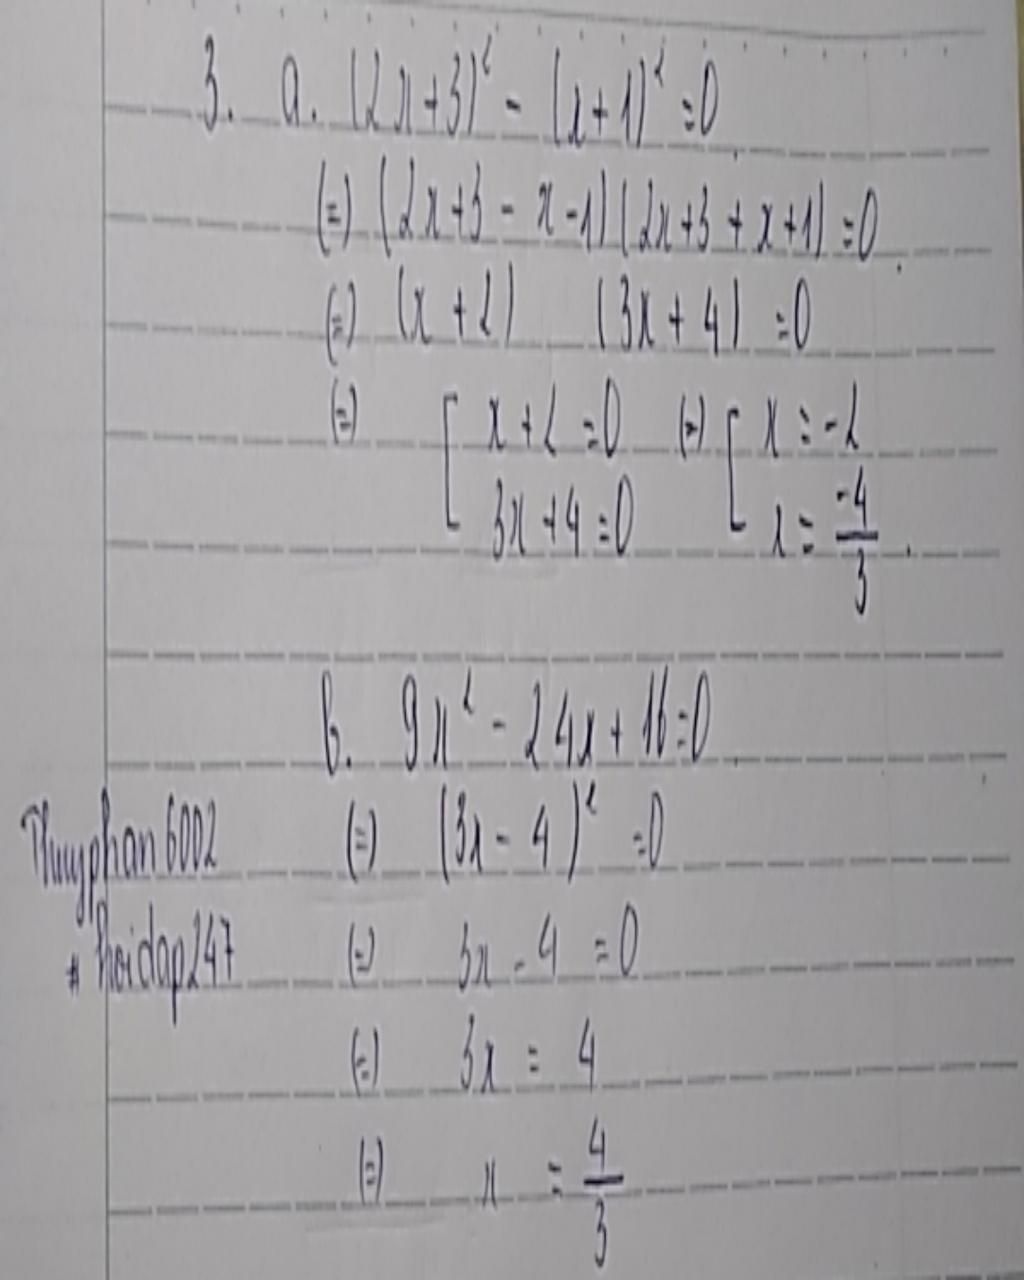 3. a. (2x+3)² - (x+1)² = 0
(=) (2x+3 - x -1) (2x+3 + x +1) = 0
(=) (x + 2) (3x + 4) = 0
(=) [ x + 2 = 0 (=) [ x = -2
3x + 4 = 0 x = -4/3.
b. 9x² - 24x + 16 = 0
(=) (3x - 4)² = 0
(=) 3x - 4 = 0
(=) 3x = 4
(=) x = 4/3
Thuyphan6002
# hoidap247